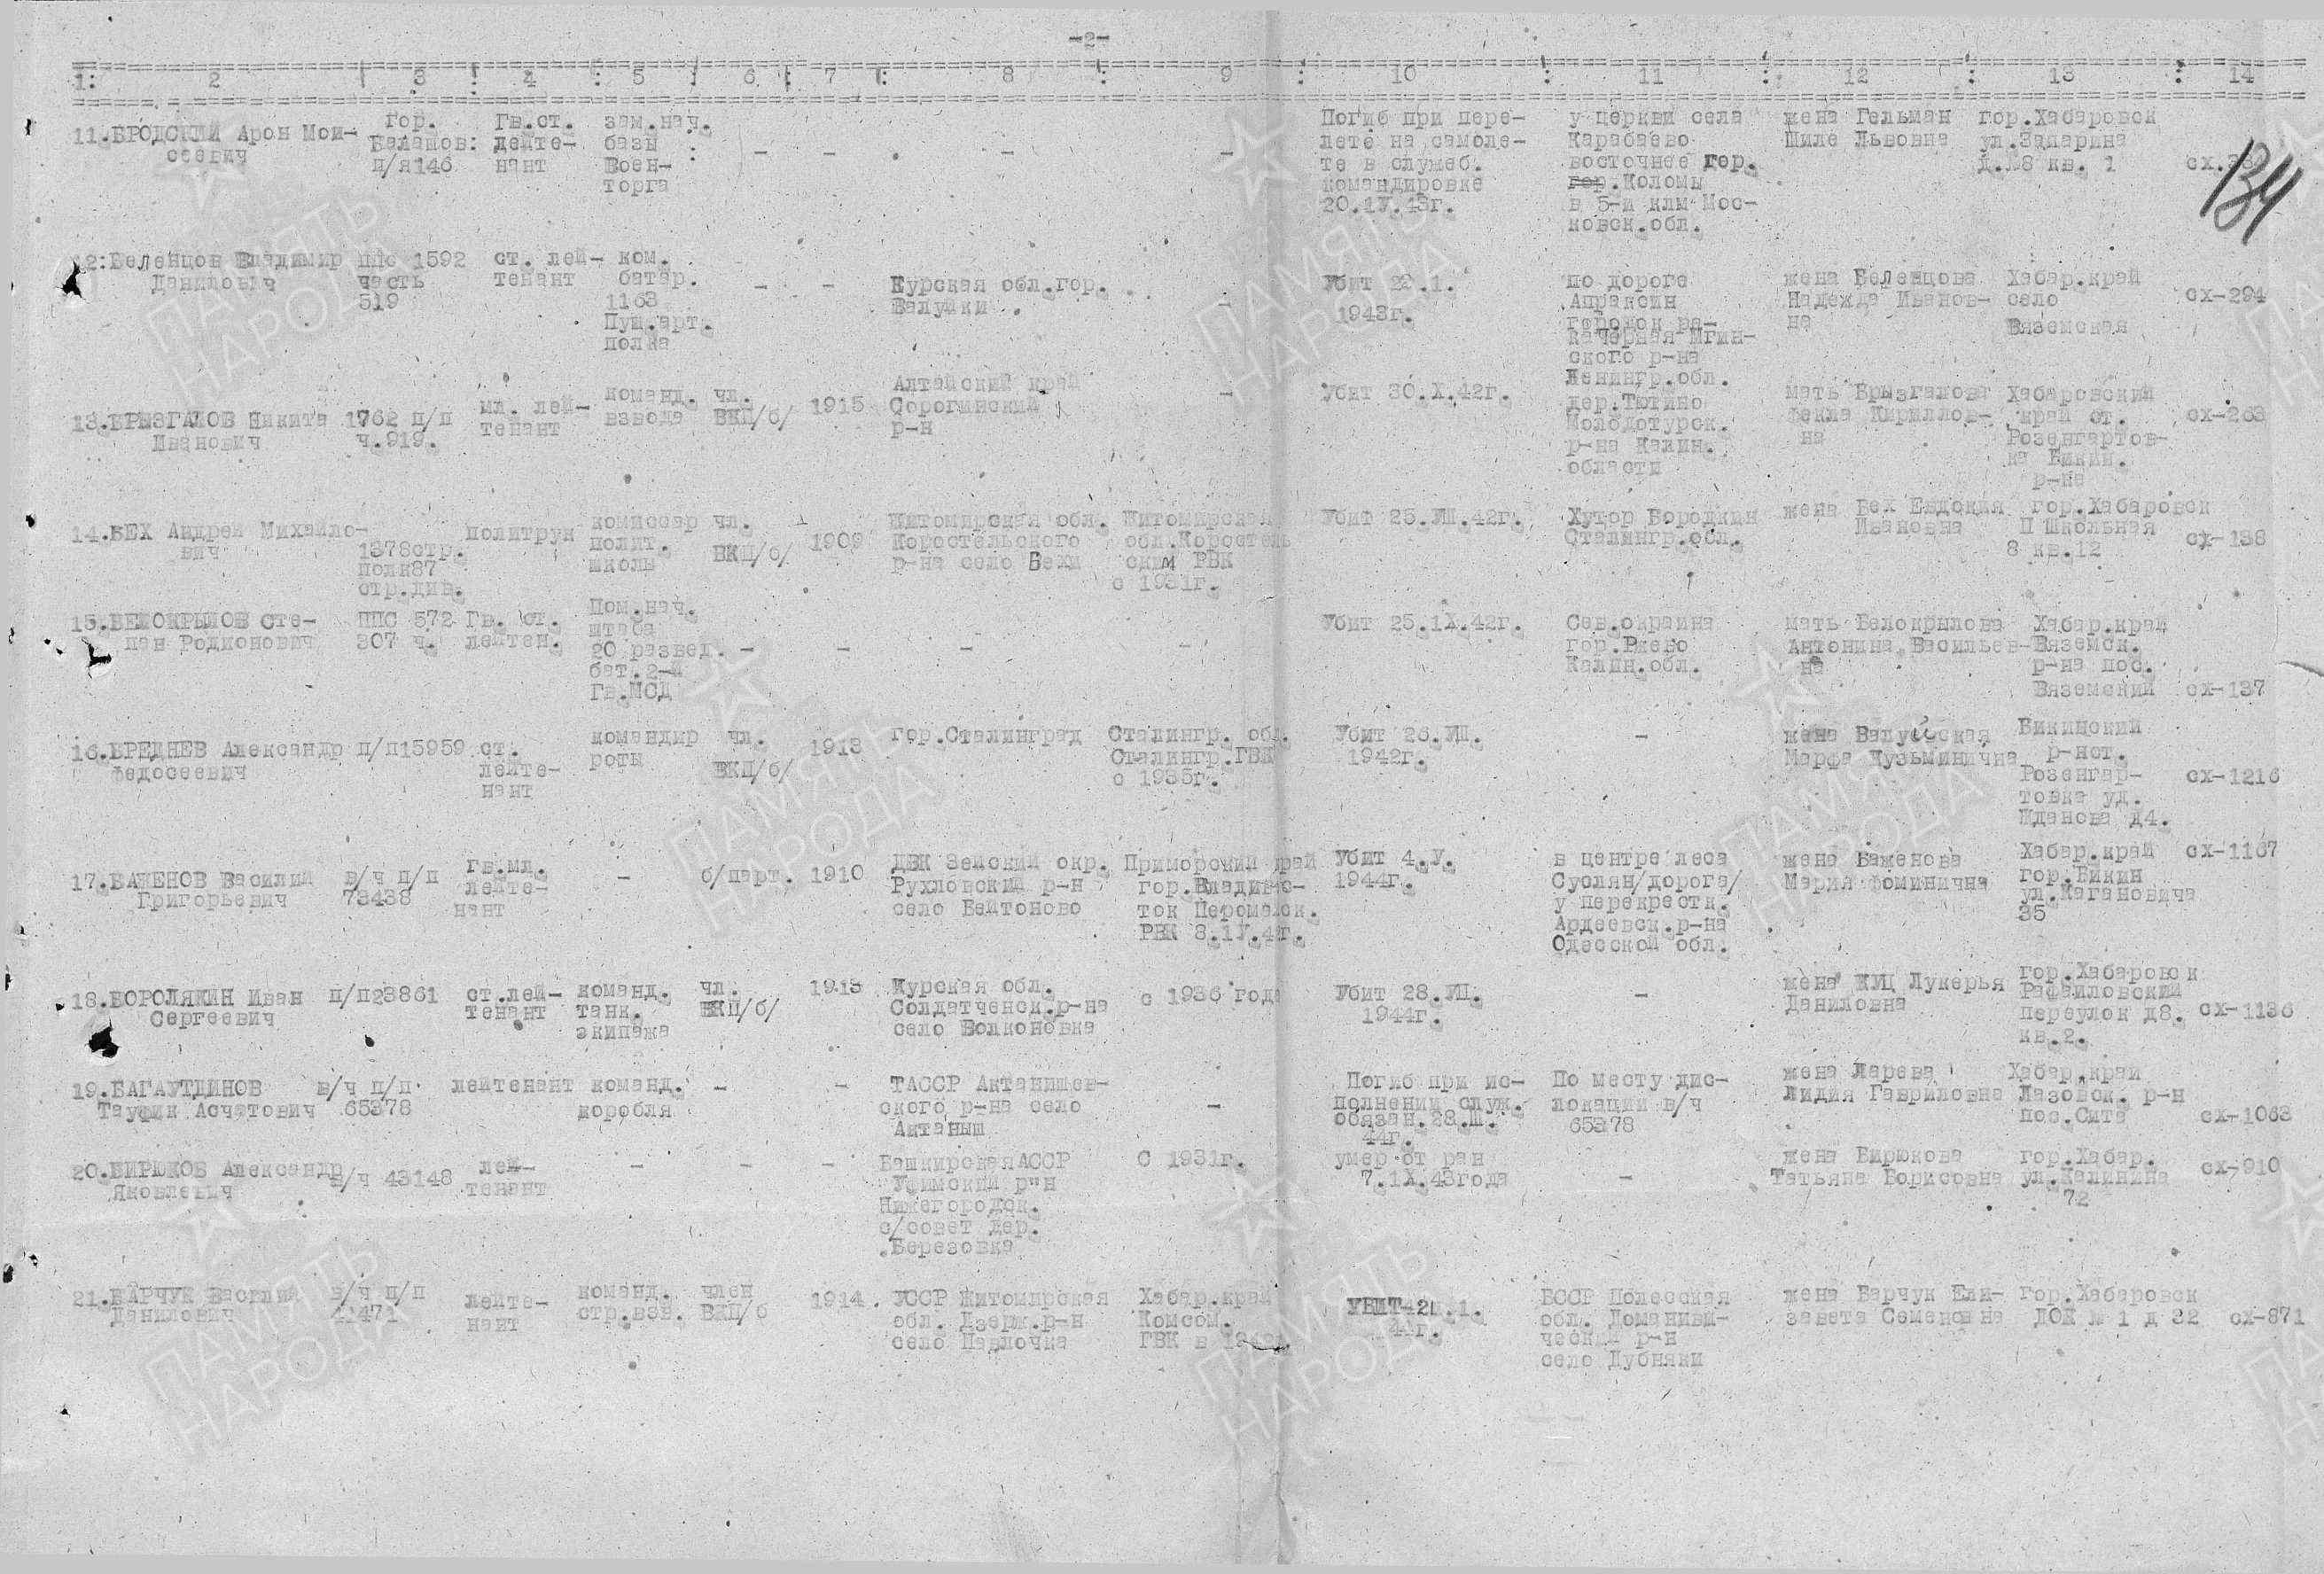 -2-
1: 2 3 4 5 6 7 8 9 10 11 12 13 14
11.БРОДСКИЙ Арон Мои-
сеевич
гор.
Балашов:
п/я146
Гв.ст.
лейте-
нант
зам.нач.
базы
Воен-
торга
- - - - -
Погиб при пере-
лете на самоле-
те в служеб.
командировке
20.1У.43г.
у церкви села
Карабаево
восточнее гор.
гор.Коломы
в 5-и клм Мос-
ковск.обл.
жена Гельман
Шиле Львовна
гор.Хабаровск
ул.Запарина
д.№8 кв. 1
134
12:Беленцов Владимир
Данилович
ппс 1592
часть
519
ст. лей-
тенант
ком.
батар.
1163
Пуш.арт.
полка
- -
Курская обл.гор.
Валуйки
-
Убит 22.1.
1943г.
по дороге
Апраксин
городок ра-
качерная Мгин-
ского р-на
Ленингр.обл.
жена Беленцова
Надежда Иванов-
на
Хабар.край
село
Вяземская
сх-294
13.БРЫЗГАЛОВ Никита
Иванович
1762 п/п
ч.919.
мл. лей-
тенант
команд.
взвода
чл.
ВКП/б/
1915
Алтайский край
Сорокинский
р-н
-
Убит 30.X.42г.
дер.Тютино
Молодотурск.
р-на Калин.
области
мать Брызгалова
Фекла Кириллов-
на
Хабаровский
край ст.
Розенгартов-
ка Бикин.
р-на
сх-263
14.БЕХ Андрей Михайло-
вич
1378стр.
полк87
стр.див.
политрук
комиссар
полит.
школы
чл.
ВКП/б/
1909
Житомирская обл.
Коростельского
р-на село Бехи
Житомирская
обл.Коростель
ским РВК
с 1931г.
Убит 25.УШ.42г.
Хутор Бородкин
Сталингр.обл.
жена Бех Евдокия
Ивановна
гор.Хабаровск
П Школьная
8 кв.12
сх-138
15.БЕЛОКРЫЛОВ Сте-
пан Родионович
ППС 572
307 ч.
Гв. ст.
лейтен.
Пом.нач.
штаба
20 развед.
бат.2-й
Гв.МСД
- - - -
Убит 25.1X.42г.
Сев.окраина
гор.Ржево
Калин.обл.
мать Белокрылова
Антонина Васильев-
на
Хабар.край
Вяземск.
р-на пос.
Вяземский
сх-137
16.БРЕДНЕВ Александр
Федосеевич
п/п15959
ст.
лейте-
нант
командир
роты
чл.
ВКП/б/
1913
гор.Сталинград
Сталингр. обл.
Сталингр.ГВК
с 1935г.
Убит 26.УП.
1942г.
-
жена
Марфа Кузьминична
Бикинский
р-нст.
Розенгар-
товка уд.
Жданова д4.
сх-1216
17.БАЖЕНОВ Василий
Григорьевич
в/ч п/п
73438
гв.мл.
лейте-
нант
-
б/парт.
1910
ДВК Зейский окр.
Рухловский р-н
село Бейтоново
Приморский край
гор.Владивос-
ток Перомайск.
РВК 8.1У.41г.
Убит 4.У.
1944г.
в центре леса
Суслян/дорога/
у перекрестк.
Ардеевск.р-на
Одесской обл.
жена Баженова
Мария Фоминична
Хабар.край
гор.Бикин
ул.Кагановича
35
сх-1167
18.БОРОЛЯКИН Иван
Сергеевич
п/п23861
ст.лей-
тенант
команд.
танк.
экипажа
чл.
ВКП/б/
1913
Курская обл.
Солдатченск.р-на
село Волконовка
с 1936 года
Убит 28.УП.
1944г.
-
жена ЖУЦ Лукерья
Даниловна
гор.Хабаровск
Рафаиловский
переулок д8.
кв.2.
сх-1136
19.БАГАУТДИНОВ
Тауфик Асчатович
в/ч п/п
65378
лейтенант
команд.
коробля
- -
ТАССР Актанишев-
ского р-на село
Актаныш
-
Погиб при ис-
полнении служ.
обязан.28.Ш.
44г.
По месту дис-
локации в/ч
65378
жена Ларева
Лидия Гавриловна
Хабар.край
Лазовск. р-н
пос.Сита
сх-1063
20.БИРЮКОВ Александр
Яковлевич
в/ч 43148
лей-
тенант
- - -
Башкирская АССР
Уфимский р-н
Нижегородск.
с/совет дер.
Березовка
С 1931г.
умер от ран
7.1X.43года
-
жена Бирюкова
Татьяна Борисовна
гор.Хабар.
ул.Калинина
72
сх-910
21.БАРЧУК Василий
Данилович
в/ч п/п
41471
лейте-
нант
команд.
стр.взв.
член
ВКП/б
1914.
УССР Житомирская
обл. Дзерж.р-н
село Павлочка
Хабар.край
Комсом.
ГВК в 1942г.
44г.
БССР Полесская
обл. Доманиви-
ческий р-н
село Дубняки
жена Барчук Ели-
завета Семеновна
гор.Хабаровск
ДОК № 1 д 32
сх-871
ПАМЯТЬ
НАРОДА